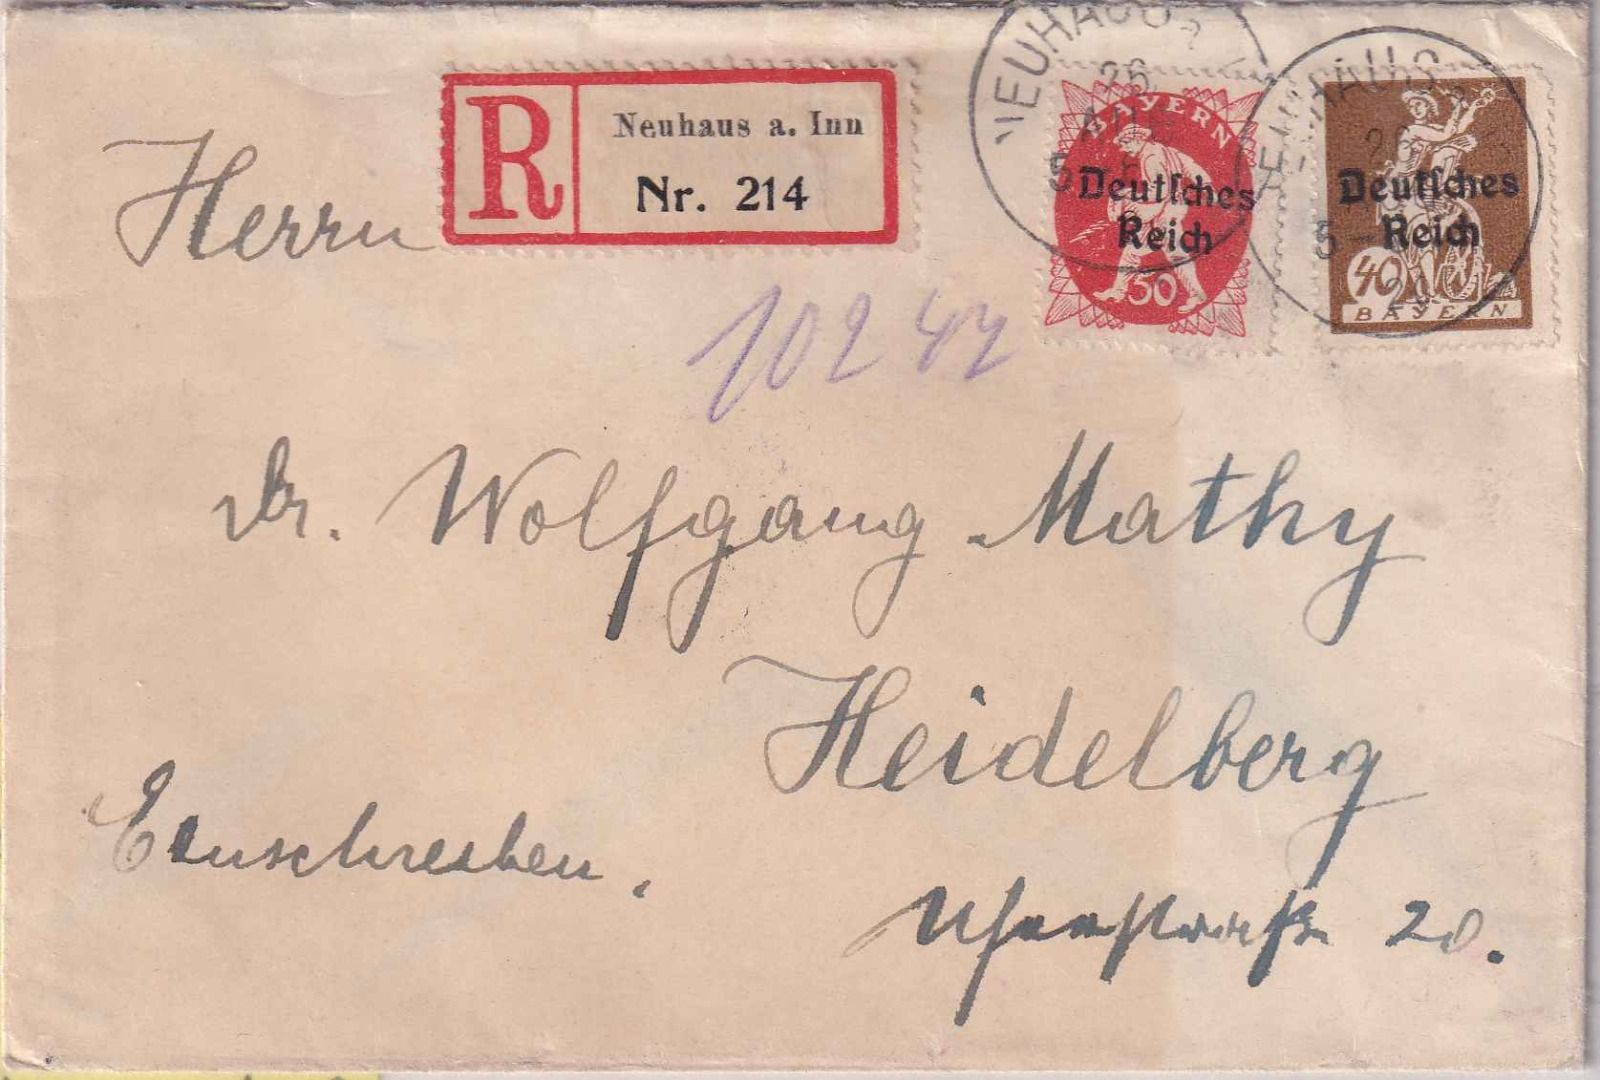 R
Neuhaus a. Inn
Nr. 214
BAYERN
Deutsches
Reich
50
Deutsches
Reich
40
BAYERN
NEUHAUS
26
AUG
5-
NEUHAUS
26
5-
20
Herrn
10242
Dr. Wolfgang Mathy
Heidelberg
Einschreiben.
20.